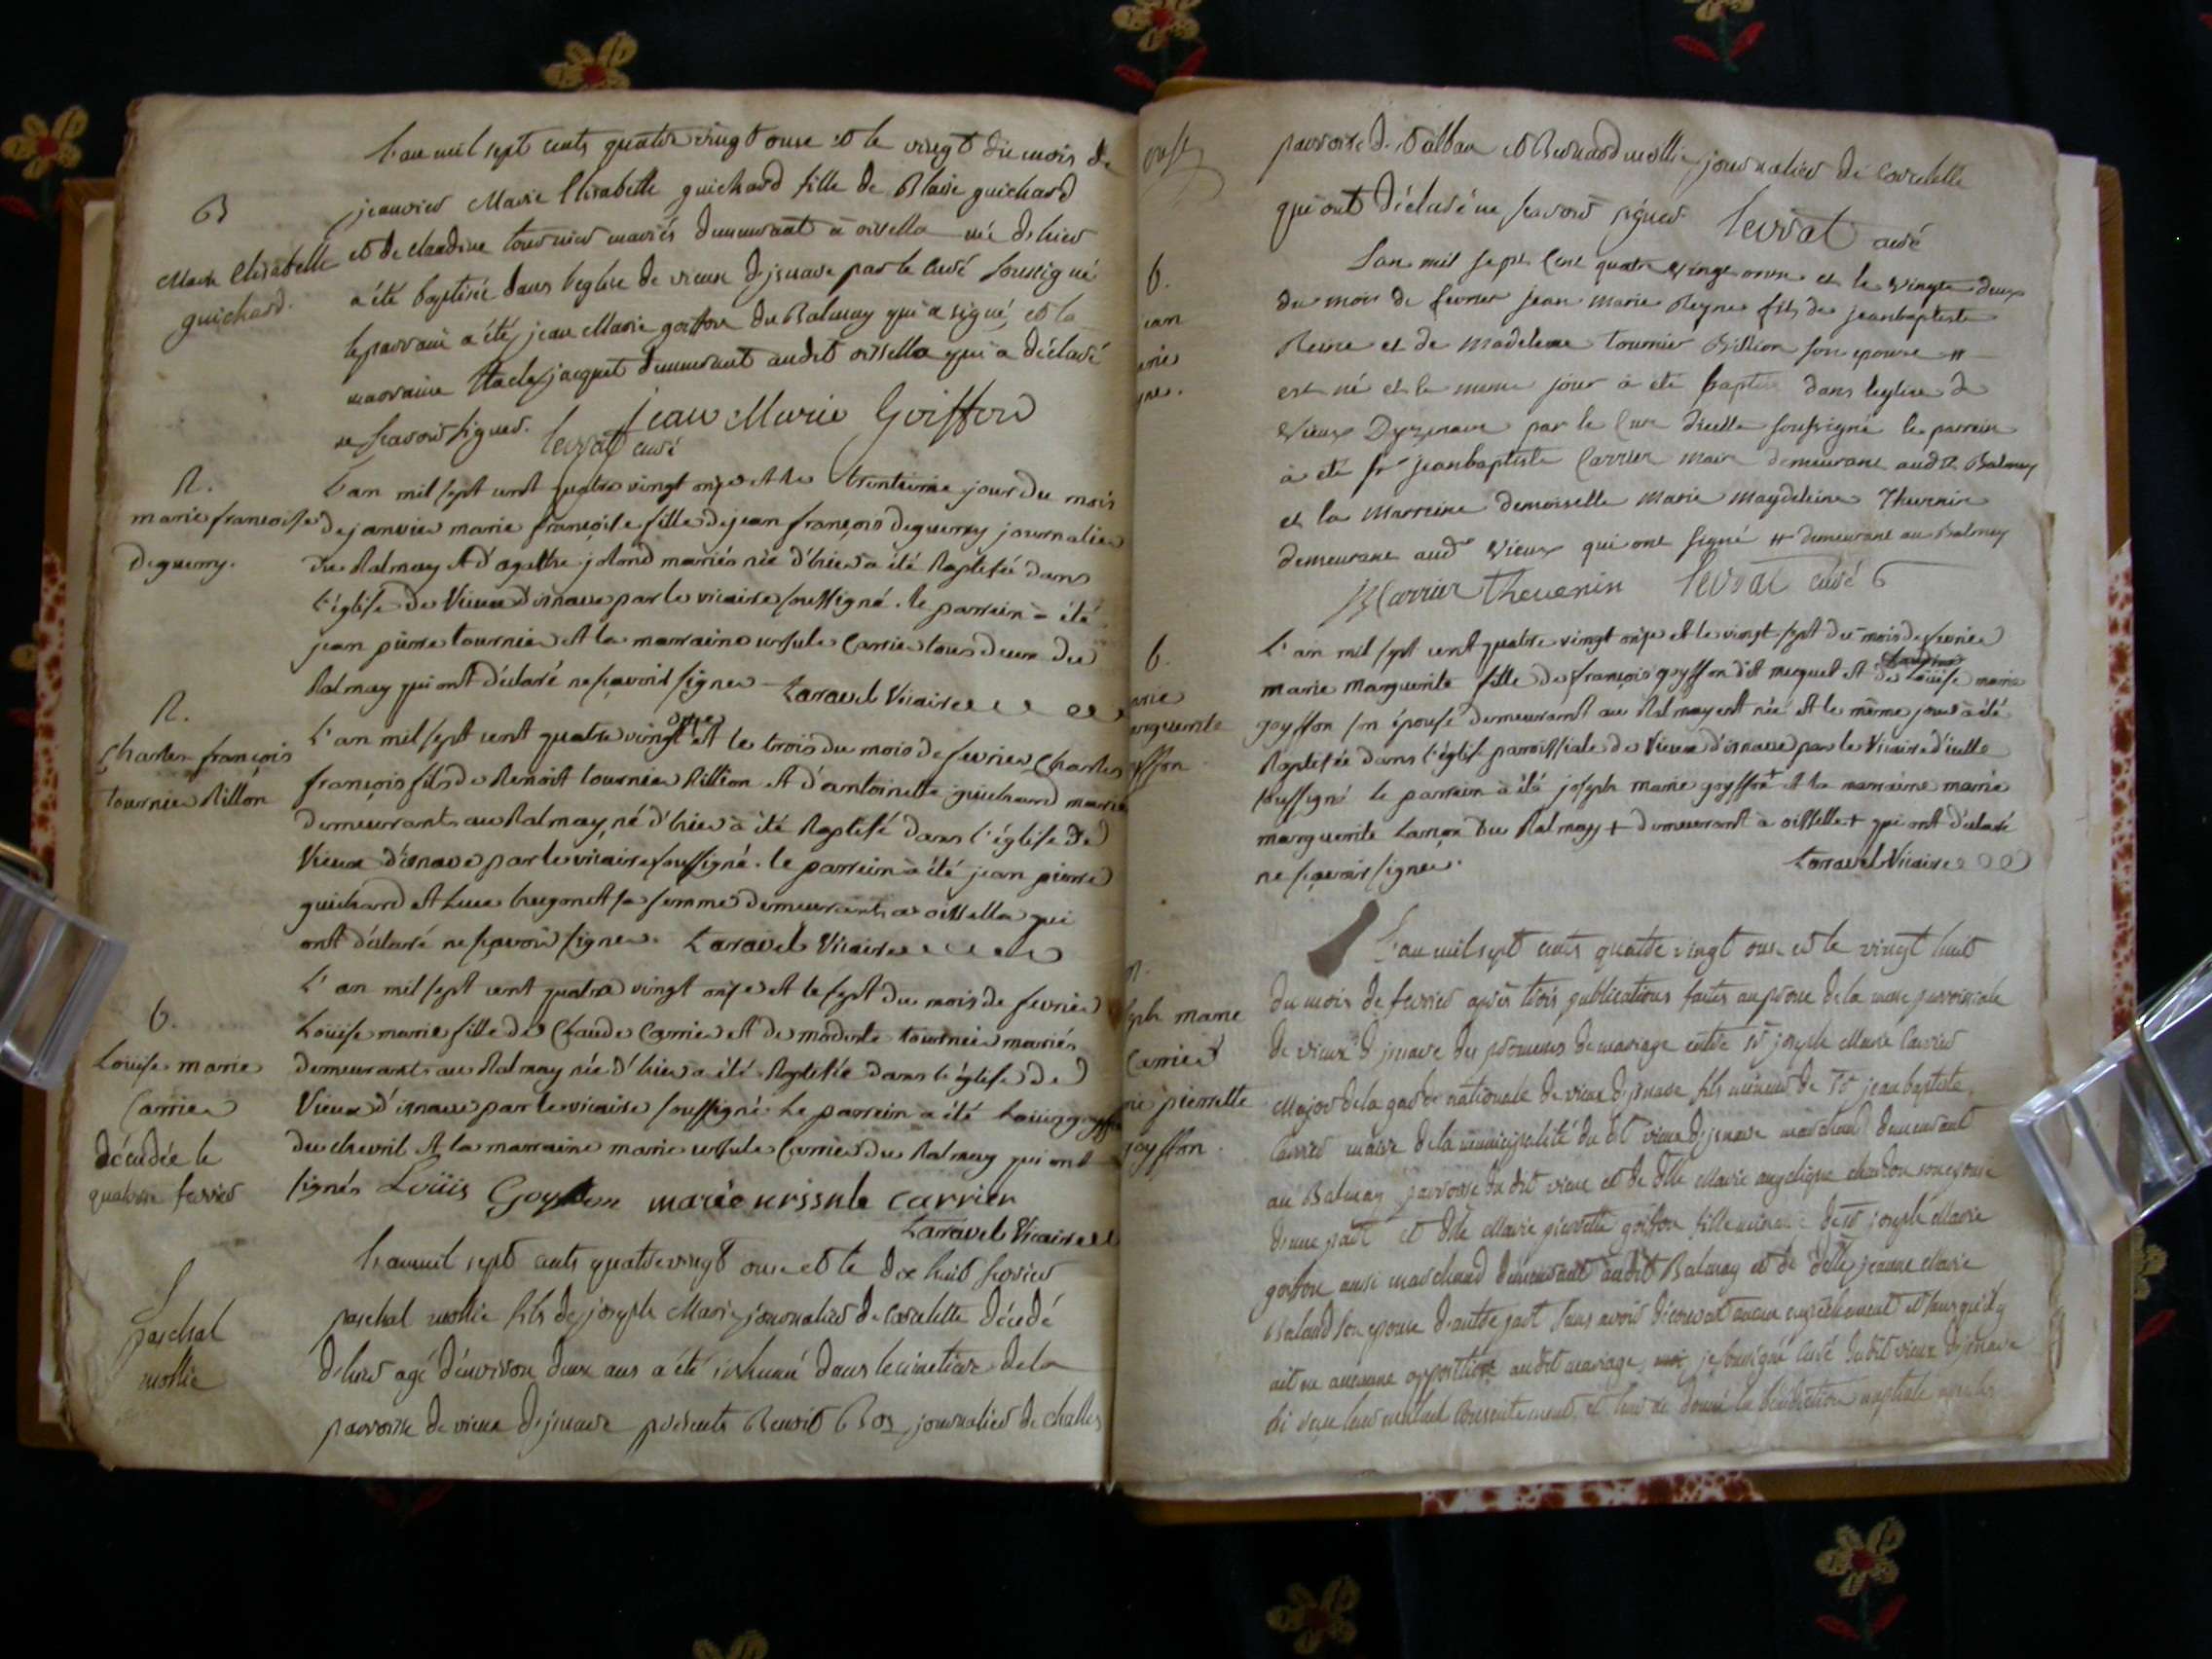 L'an mil sept cents quatre vingt onze et le vingt du mois de
B
janvier Marie Elisabette guichard fille de Blaise guichard
Marie Elisabette
guichard.
et de claudine tournier mariés demeurant à oisella née d'hier
a été baptisée dans l'eglise de vieux d'jsnave par le curé soussigné
le parrain a été jean Marie goiffon du Balmay qui a signé, et la
marraine jacquet demeurant audit oissella qui a déclaré
ne scavoir signer. jean Marie Goiffon
levrat curé
B.
marie francoise
deguerry.
L'an mil sept cent quatre vingt onze et le trentieme jour du mois
de janvier marie françoise fille de jean françois deguerry journalier
du Balmay et d'agathe jolond mariés née d'hier a été Baptisée dans
l'église de Vieux d'isnave par le vicaire soussigné. le parrein a été
jean pierre tournier et la marraine ursule Carrier tous deux du
Balmay qui ont déclaré ne sçavoir signer Laravel Vicaire
B.
Charles françois
tournier Billion
L'an mil sept cent quatre vingt onze et le trois du mois de fevrier Charles
françois fils de Benoit tournier Billion et d'antoinette guichard mariés
demeurants au Balmay, né d'hier a été Baptisé dans l'église de
Vieux d'isnave par le vicaire soussigné. le parrein a été jean pierre
guichard et sa femme demeurants a oissella qui
ont déclaré ne sçavoir signer. Laravel Vicaire
b.
Loüise marie
Carrier
décédée le
quatorze fevrier
L'an mil sept cent quatre vingt onze et le sept du mois de fevrier
Loüise marie fille de Claude Carrier et de modeste tournier mariés
demeurants au Balmay née d'hier a été Baptisée dans l'église de
Vieux d'isnave par le vicaire soussigné. Le parrein a été Loüis goyffon
du chevril et la marraine marie ursule Carrier du Balmay qui ont
signés Loüis Goyffon marie urssule carrier
Laravel Vicaire
S
paschal
mollie
L'an mil sept cents quatre vingt onze et le dix huit fevrier
paschal mollie fils de joseph Marie journalier de corcelette décédé
d'hier agé d'environ deux ans a été inhumé dans le cimetiere de la
parroisse de vieux d'jsnave présents Benoit Boz journalier de challes
parroisse de st alban et Bernard mollie journalier de corcelette
qui ont déclaré ne scavoir signer. levrat curé
b.
L'an mil sept cent quatre vingt onze et le vingte deux
du mois de fevrier jean marie Reyne fils de jeanbaptiste
Reine et de Madeleine tournier Billion son epouse #
est né et le meme jour a été baptisé dans l'eglise de
Vieux Dyzenave par le Cure d'icelle soussigné le parrein
a été sr jeanbaptiste Carrier maire demeurant audit Balmay
et la Marreine demoiselle marie magdeleine Thevenin
demeurant audt Vieux qui ont signé # demeurant au Balmay
JBCarrier thevenin levrat curé
b.
L'an mil sept cent quatre vingt onze et le vingt sept du mois de fevrier
marie marguerite fille de françois goyffon dit muguet et de Loüise marie
goyffon son épouse demeurant au Balmay est née et le même jour a été
Baptisée dans l'église parroissiale de Vieux d'isnave par le Vicaire d'icelle
soussigné le parrein a été joseph marie goyffon + et la marraine marie
marguerite Lançon du Balmay + demeurant a oissella + qui ont déclaré
ne sçavoir signer. Laravel Vicaire
L'an mil sept cents quatre vingt onze et le vingt huit
du mois de fevrier après trois publications faites au prone de la messe parroissiale
de vieux d'jsnave des promesses de mariage entre sr joseph Marie Carrier
Major de la garde nationale de vieux d'jsnave fils mineur de sr jean baptiste
Carrier maire de la municipalité du dit vieux d'jsnave marchand demeurant
au Balmay parroisse du dit vieux et de dlle Marie angelique chardon son epouse
d'une part et dlle Marie pierrette goiffon fille mineure de sr joseph Marie
goiffon aussi marchand demeurant audit Balmay et de delle jeanne Marie
Baland son epouse d'autre part sans avoir découvert aucun empêchement et sans qu'il y
ait eu aucune opposition audit mariage, je soussigné curé dudit vieux d'jsnave
ai reçu leur mutuel consentement, et leur ai donné la bénédiction nuptiale